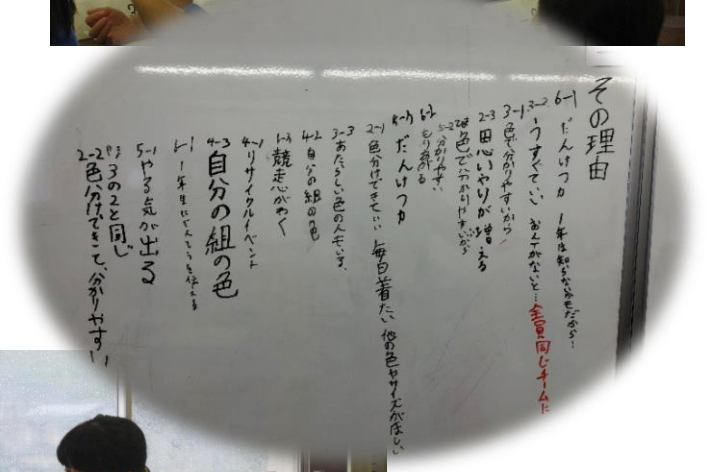 その理由
6-1 だんけつ力 1年は知らないかもだから…
3-2 うすくていい おんどがないと… 全員同じチームに
3-1 色で分かりやすいから
2-3 思いやりが増える
色で分かりやすいから
5-2 分かりやすい
6-2 もり上がる
だんけつ力
2-1 色分けできていい 毎日着たい 他の色やサイズがほしい
3-3 あたらしい色の人もいる
4-2 自分の組の色
1-3 競走心がわく
4-1 リサイクルイベント
4-3 自分の組の色
1年生にでんとうを伝える
5-1 やる気が出る
3の2と同じ
2-2 色分けできて、分かりやすい